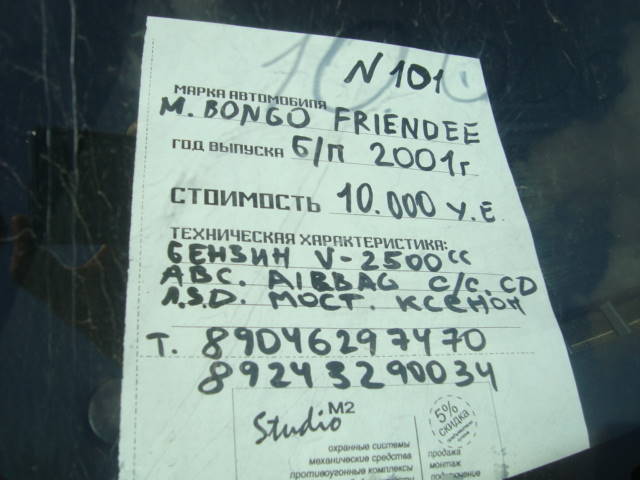 N 101
МАРКА АВТОМОБИЛЯ
M. BONGO FRIENDEE
ГОД ВЫПУСКА Б/П 2001г
СТОИМОСТЬ 10.000 У.Е.
ТЕХНИЧЕСКАЯ ХАРАКТЕРИСТИКА:
БЕНЗИН V-2500cc
ABC. AIRBAG C/C. CD
L.S.D. МОСТ. КСЕНОН
Т. 89046297470
89243290034
Studio M2
5% скидка
охранные системы
механические средства
противоугонные комплексы
продажа
монтаж
подключение